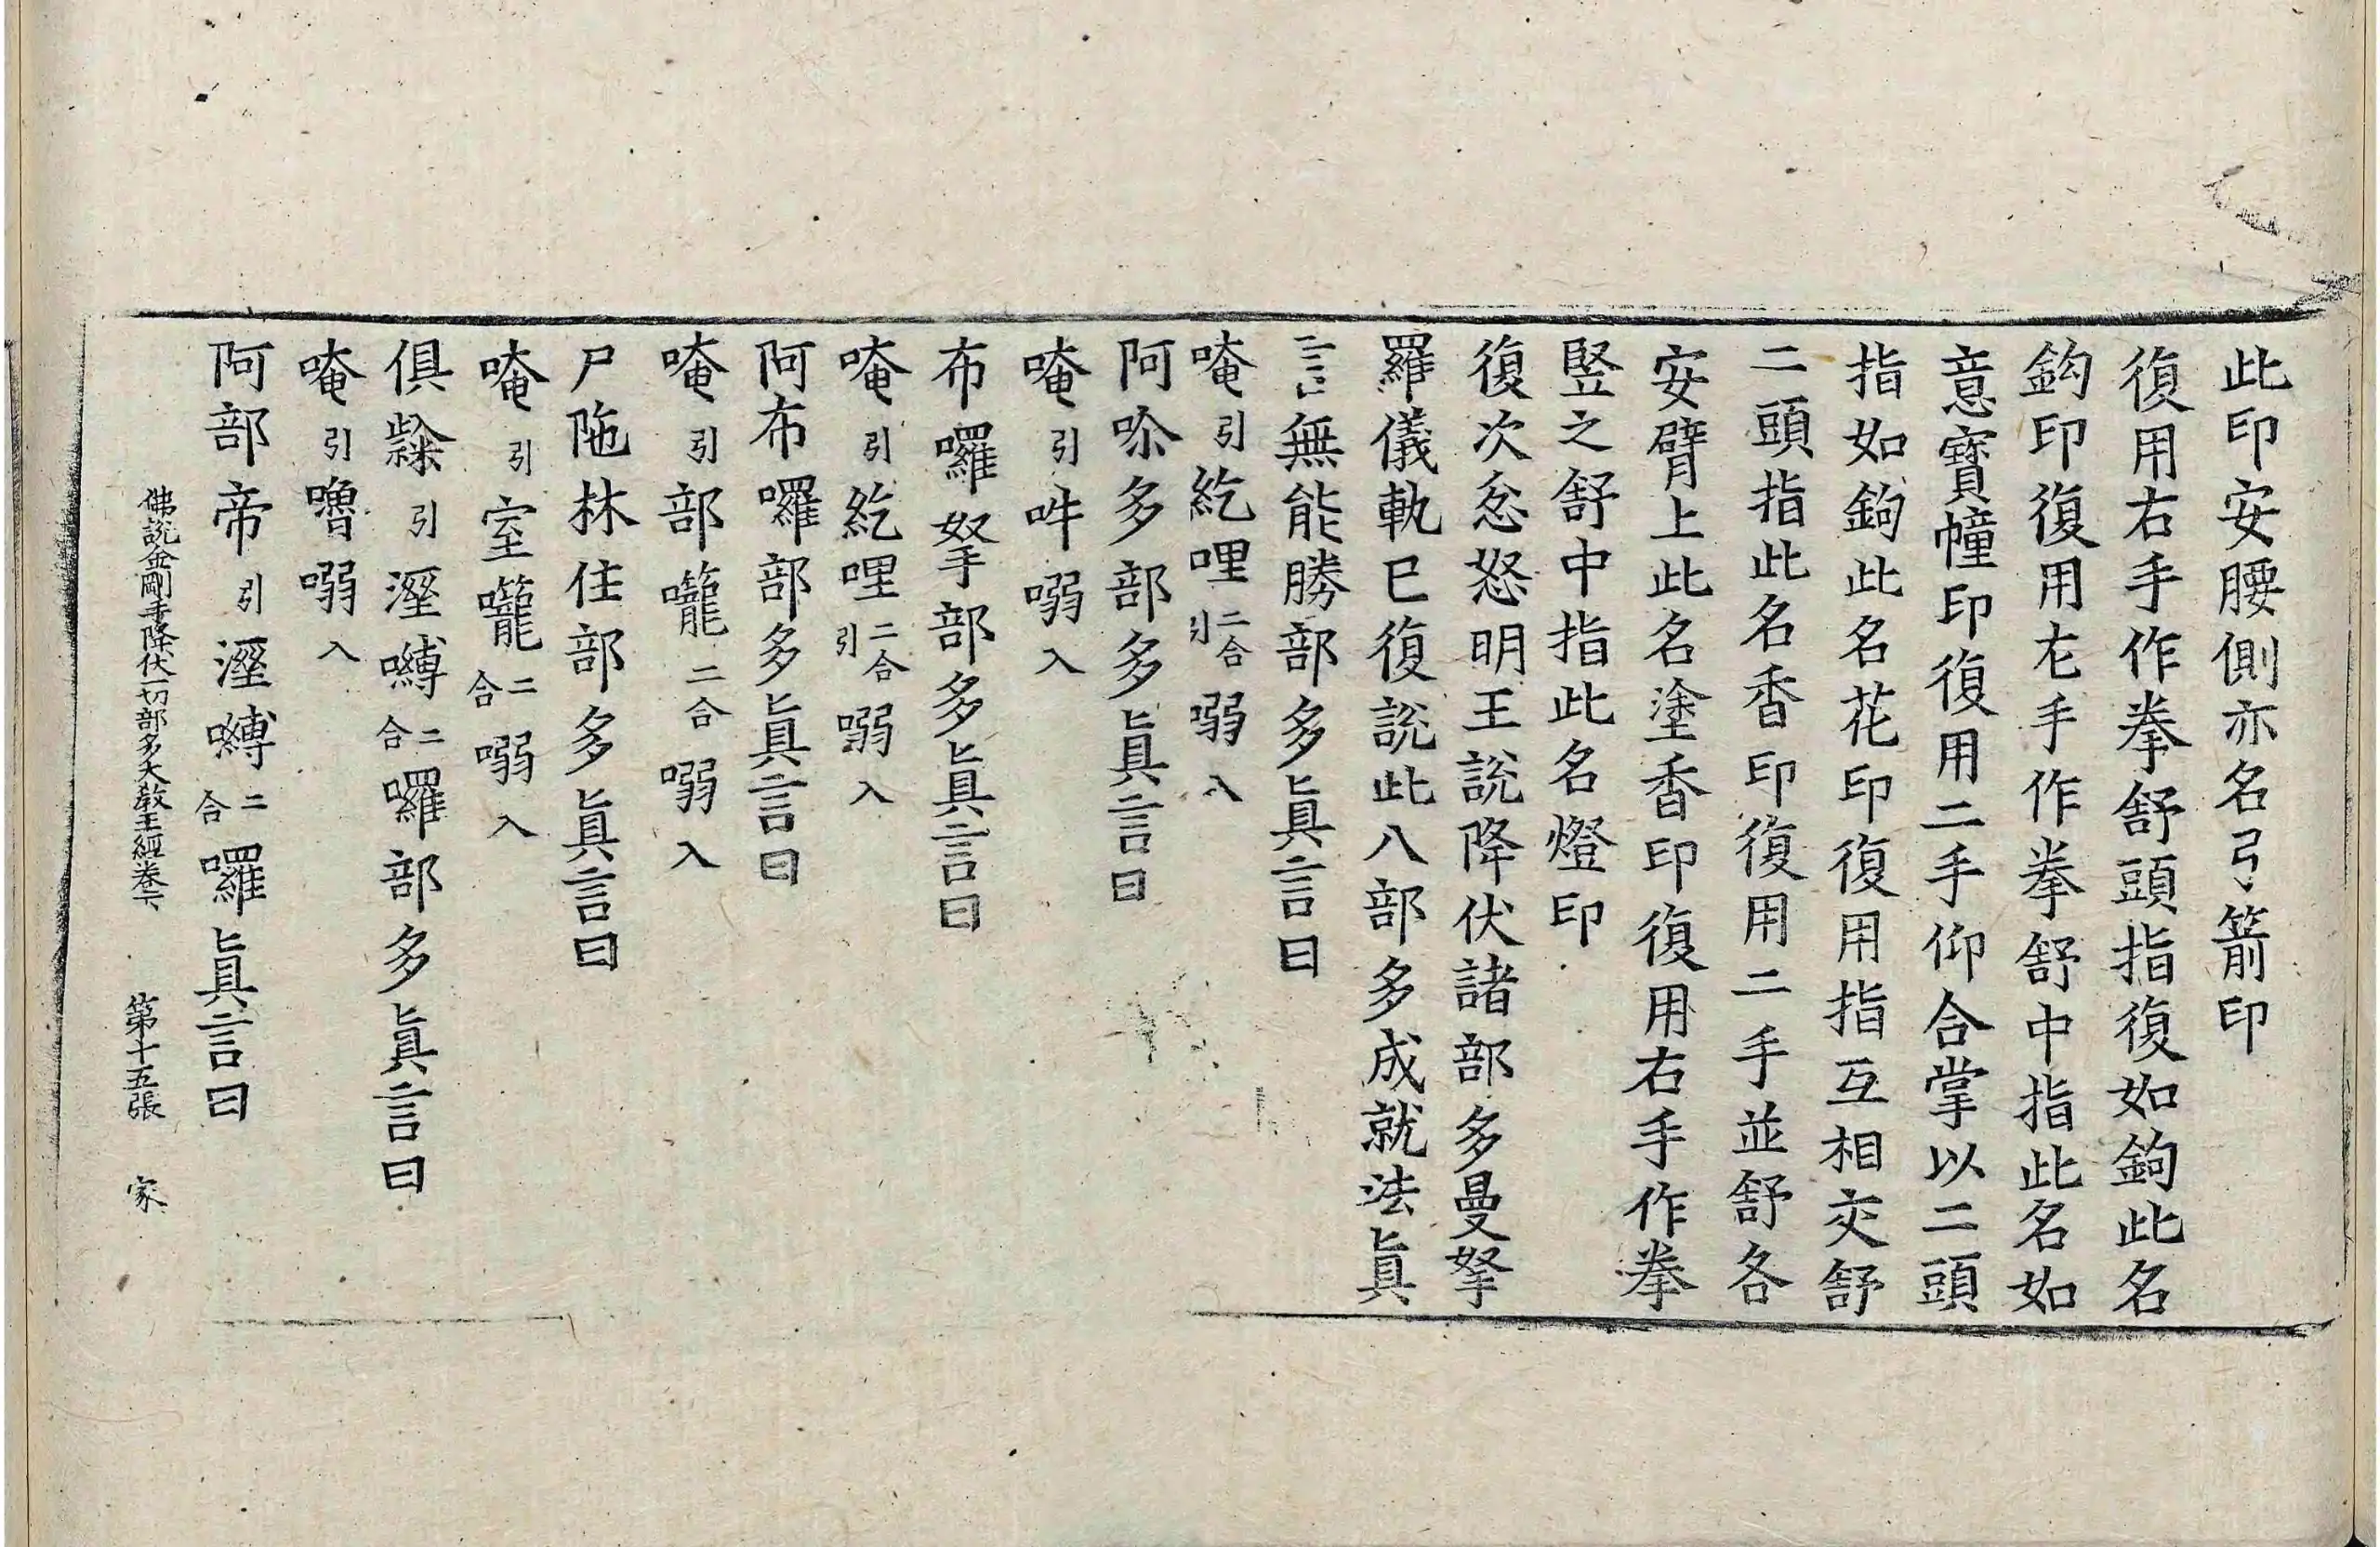 此印安腰側亦名弓箭印
復用右手作拳舒頭指復如鉤此名
鈎印復用左手作拳舒中指此名如
意寶幢印復用二手仰合掌以二頭
指如鉤此名花印復用指互相交舒
二頭指此名香印復用二手並舒各
安臂上此名塗香印復用右手作拳
竪之舒中指此名燈印
復次忿怒明王說降伏諸部多曼拏
羅儀軌已復說此八部多成就法眞
言無能勝部多眞言曰
唵引紇哩二合引嗍入
阿㖠多部多眞言曰
唵引吽嗍入
布囉拏部多眞言曰
唵引紇哩二合引嗍入
阿布囉部多眞言曰
唵引部嚨二合嗍入
尸陁林住部多眞言曰
唵引室嚨二合嗍入
俱引濕嚩二合囉部多眞言曰
唵引嚕嗍入
阿部帝引濕嚩二合囉眞言曰
佛說金剛手降伏一切部多大教王經卷下 第十五張 家